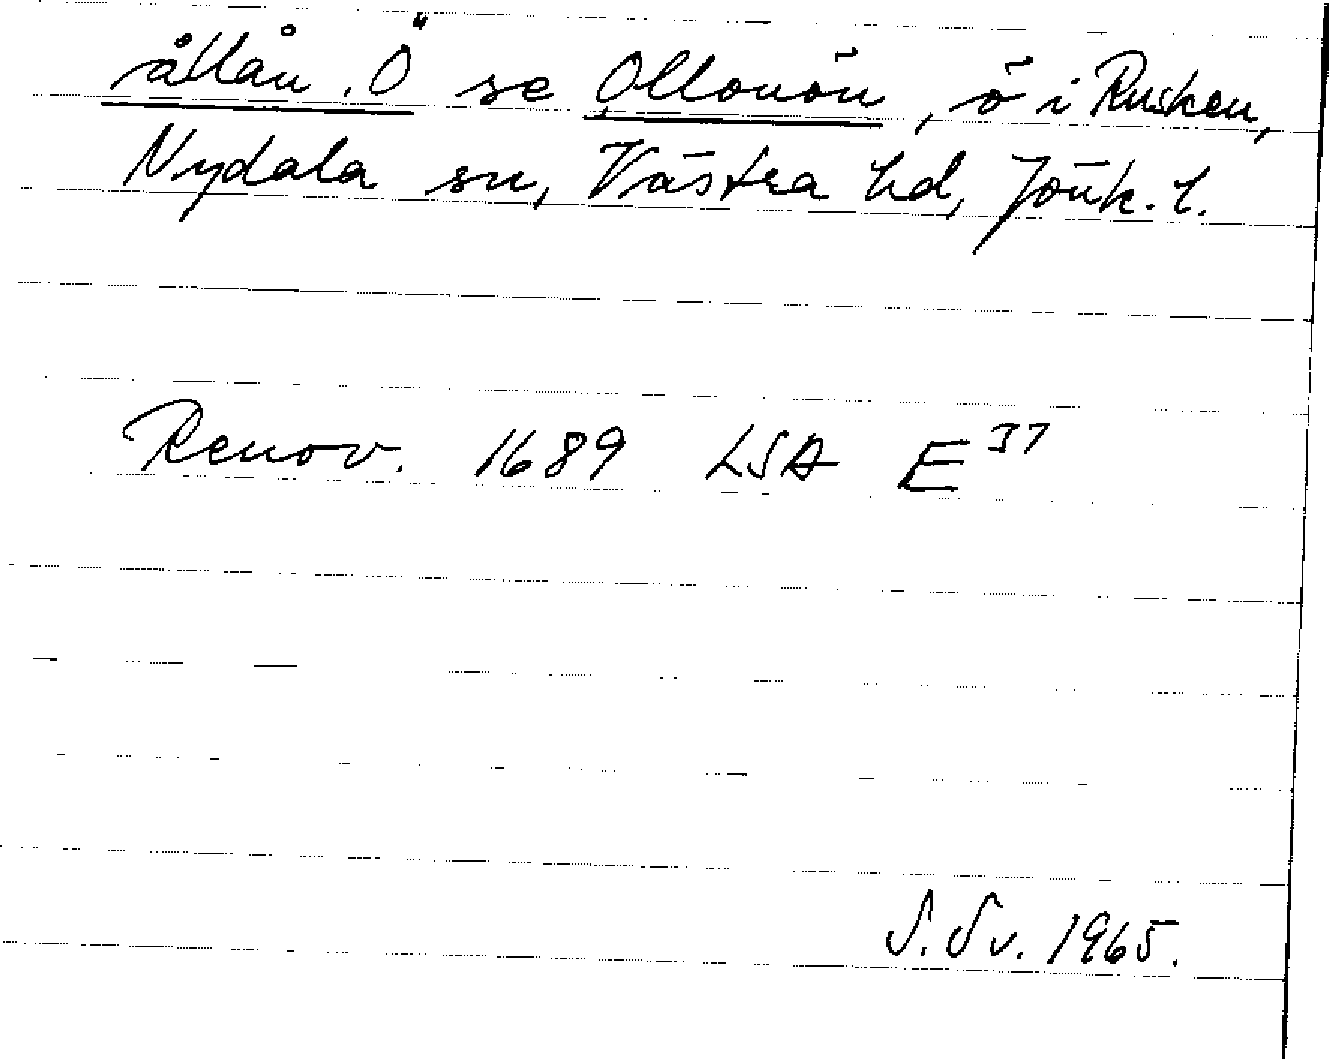 ållån, Ö se Ollonön, ö i Rusken,
Nydala sn, Västra hd, Jönk. l.
Renov. 1689 LSA E 37
S. Sv. 1965.